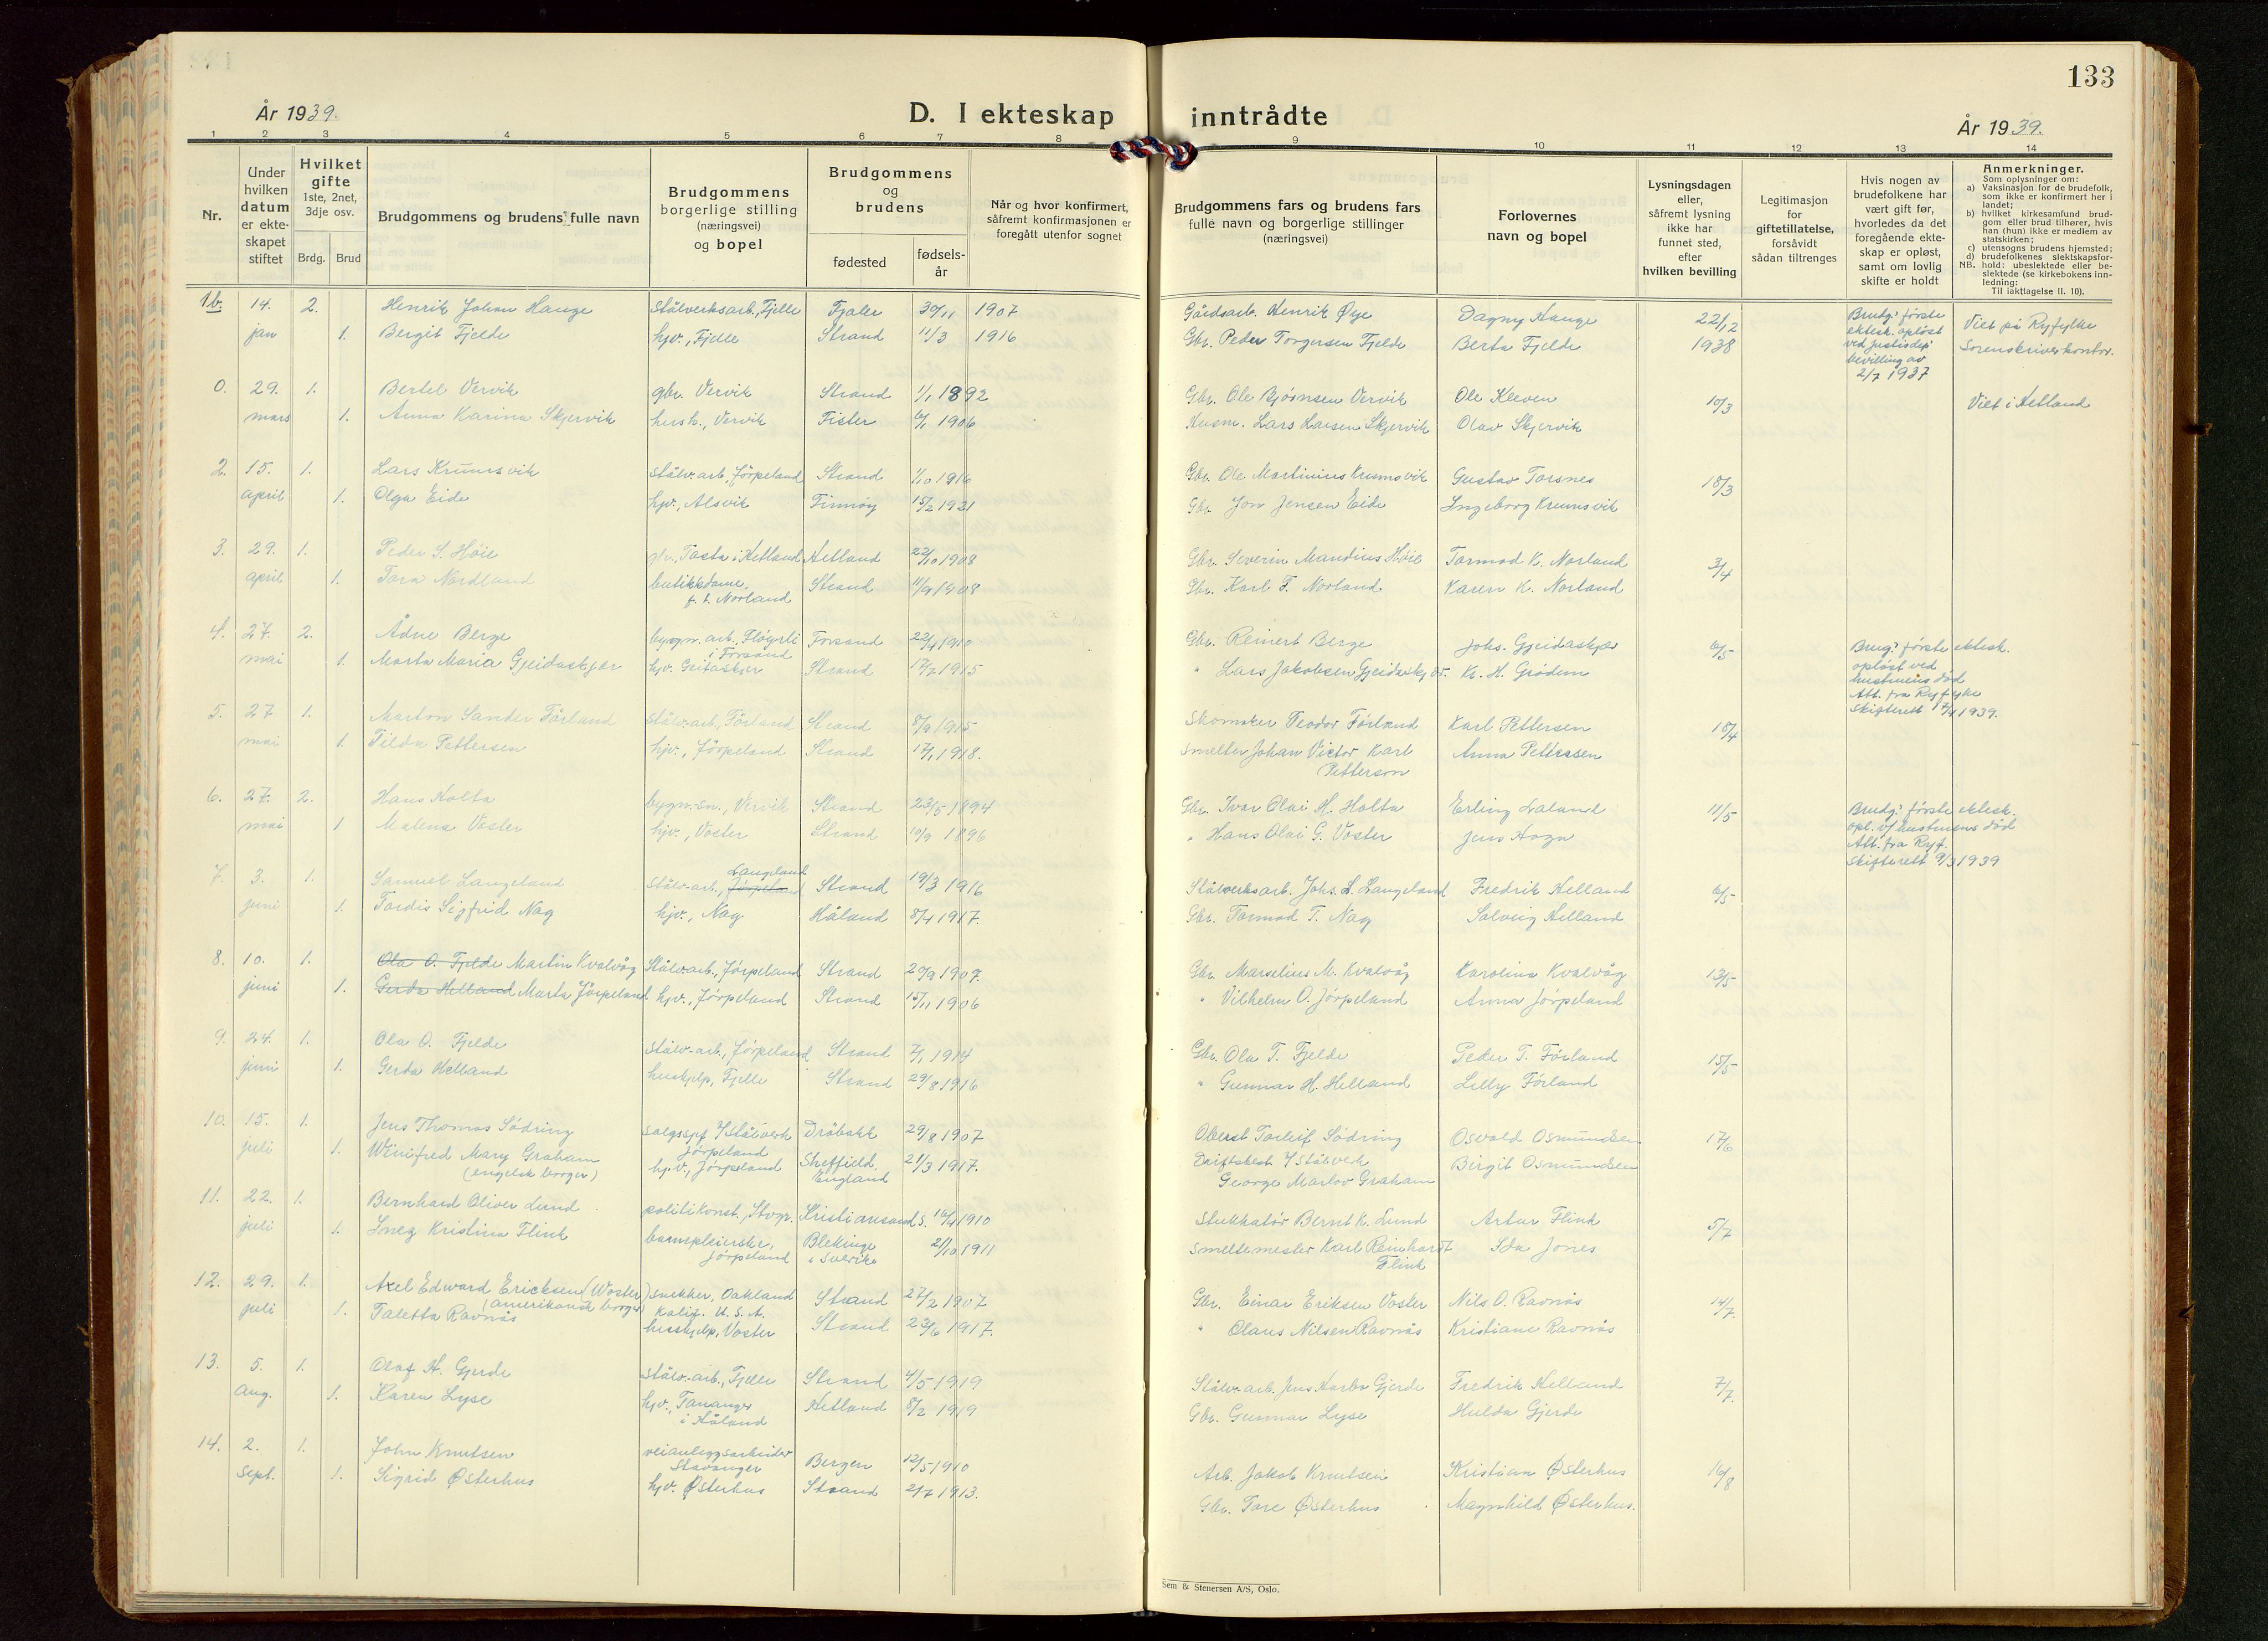 133
År 1939.
D. I ekteskap inntrådte
År 1939.
1 2 3 4 5 6 7 8 9 10 11 12 13 14
Nr.
Under hvilken datum er ekte-skapet stiftet
Hvilket gifte 1ste, 2net, 3dje osv.
Brdg. Brud
Brudgommens og brudens fulle navn
Brudgommens borgerlige stilling (næringsvei) og bopel
Brudgommens og brudens
fødested
fødsels-år
Når og hvor konfirmert, såfremt konfirmasjonen er foregått utenfor sognet
Brudgommens fars og brudens fars fulle navn og borgerlige stillinger (næringsvei)
Forlovernes navn og bopel
Lysningsdagen eller, såfremt lysning ikke har funnet sted, efter hvilken bevilling
Legitimasjon for giftetillatelse, forsåvidt sådan tiltrenges
Hvis nogen av brudefolkene har vært gift før, hvorledes da det foregående ekte-skap er opløst, samt om lovlig skifte er holdt
Anmerkninger.
Som oplysninger om:
a) Vaksinasjon for de brudefolk, som ikke er konfirmert her i landet;
b) hvilket kirkesamfund brud-gom eller brud tilhører, hvis han (hun) ikke er medlem av statskirken;
c) utensogns brudens hjemsted;
d) brudefolkenes slektskapsfor-hold: ubeslektede eller be-slektede (se kirkebokens inn-ledning:
NB. Til iakttagelse II. 10).
1b. 14. 2. Henrik Johan Hauge Stålverksarb., Fjelle Fjaler 30/11 1907 Gårdsarb. Henrik Øye Dagny Hauge 22/12 Brudg.s første ektesk. opløst ved justisdep. bevilling av 2/7 1937 Viet på Ryfylke
jan 1. Bergit Fjelde hjv., Fjelle Strand 11/3 1916 Gbr. Peder Torgersen Fjelde Berta Fjelde 1938 Sorenskriverkontor.
0. 29. 1. Bertel Vervik gbr. Vervik Strand 1/1 1892 Gbr. Ole Bjørnsen Vervik Ole Kleven 10/3 Viet i Hetland
mars 1. Anna Karina Skjervik hush., Vervik Fister 6/1 1906 Husm. Lars Larsen Skjervik Olav Skjervik
2. 15. 1. Lars Krumsvik Stålv.arb, Jörpeland Strand 1/10 1916 Gbr. Ole Martinius Krumsvik Gustav Torsnes 18/3
april 1. Olga Eide hjv., Alsvik Finnøy 15/2 1921 Gbr. Jon Jensen Eide Ingeborg Krumsvik
3. 29. 1. Peder S. Høie gbr., Tasta i Hetland Hetland 22/10 1908 Gbr. Severin Mandius Høie Tormod K. Norland 3/4
april 1. Tora Nordland butikkdame, f. t. Norland Strand 11/9 1908 Gbr. Karl T. Norland Karen K. Norland
4. 27. 2. Ådne Berge bygn. arb., Flögeli i Forsand Forsand 22/4 1910 Gbr. Reinert Berge Johs. Gjeidaskjær 6/5 Brug.s første ektesk. opløst ved hustruens död Att. fra Ryfylke Skifterett 17/4 1939.
mai 1. Marta Maria Gjeidaskjær hjv. Geitaskjer Strand 17/7 1915 " Lars Jakobsen Gjeidaskjær. Kr. H. Grödem
5. 27 1. Marton Sander Förland Stålv-arb., Förland Strand 8/9 1915 Skomaker Teodor Förland Karl Pettersen 18/4
mai 1. Tilda Pettersen hjv., Jörpeland Strand 17/1 1918. Smelter Johan Victor Karl Petterson Anna Pettersen
6. 27. 2. Hans Holta bygn.-sn., Vervik Strand 23/5 1894 Gbr. Ivar Olai H. Holta Erling Laland 11/5 Brudg.s første ektesk. opl. v/ hustruens död Att. fra Ryf. Skifterett 9/3 1939
mai 1 Malena Voster hjv., Voster Strand 10/9 1896 " Hans Olai G. Voster Jens Hogn
7. 3. 1. Samuel Langeland Stålv-arb., Jörpeland Langeland Strand 19/3 1916 Stålverksarb. Johs. L. Langeland Fredrik Helland 6/5
juni 1. Tordis Sigfrid Nag hjv., Nag Håland 8/4 1917. Gbr. Tormod T. Nag Solveig Helland
8. 10. 1. Ola O. Fjelde Martin Kvalvåg Stålv-arb., Jörpeland Strand 20/9 1907. Gbr. Marselius M. Kvalvåg Karolina Kvalvåg 13/5
juni 1. Gerda Helland Marta Jörpeland hjv., Jörpeland Strand 15/11 1906 " Vilhelm O. Jörpeland Anna Jörpeland
9. 24. 1. Ola O. Fjelde Stålv-arb., Jörpeland Strand 7/1 1914 Gbr. Ola T. Fjelde Peder T. Förland 15/5
juni 1. Gerda Helland huskjelp, Fjelle Strand 29/8 1916 " Gunnar H. Helland Lilly Förland
10. 15. 1. Jens Thomas Södring Salgssjef v/ Stålverk Jörpeland Dröbakk 29/8 1907 Oberst Torleif Södring Osvald Osmundsen 17/6
juli 1. Winifred Mary Graham (engelsk borger) hjv., Jörpeland Sheffield. England 21/3 1917. Driftsbest. v/ Stålverk George Marlov Graham Birgit Osmundsen
11. 22. 1. Bernhard Oliver Lund politikonst., Stvgr. Kristiansand S. 16/4 1910 Stukkatör Bernt K. Lund Artur Flink 5/7
juli 1. Ineg Kristina Flink barnepleierske, Jörpeland Blekinge i Sverike 21/10 1911 Smeltemester Karl Reinhardt Flink Ida Jones
12. 29. 1. Axel Edward Ericksen (Woster) (amerikansk borger) snekker, Oakland Kalif. U. S. A. Strand 27/2 1907 Gbr. Einar Eriksen Voster Nils O. Ravnås 14/7.
juli 1. Taletta Ravnås huskjelp, Voster Strand 23/6 1917. " Olaus Nilsen Ravnås Kristiane Ravnås
13. 5. 1. Olaf H. Gjerde Stålv-arb., Fjelle Strand 4/5 1919 Stålv-arb. Jens Harbo Gjerde Fredrik Helland 7/7.
aug. 1. Karen Lyse hjv., Tananger i Håland Hetland 8/2 1919 Gbr. Gunnar Lyse Hulda Gjerde
14. 2. 1. John Knutsen veianleggsarbeider Stavanger Bergen 12/5 1910 Arb. Jakob Knutsen Kristian Østerhus 16/8
Sept. 1. Sigrid Østerhus hjv. Østerhus Strand 2/7 1913. Gbr. Tore Østerhus Magnhild Østerhus.
Sem & Stenersen A/S, Oslo.